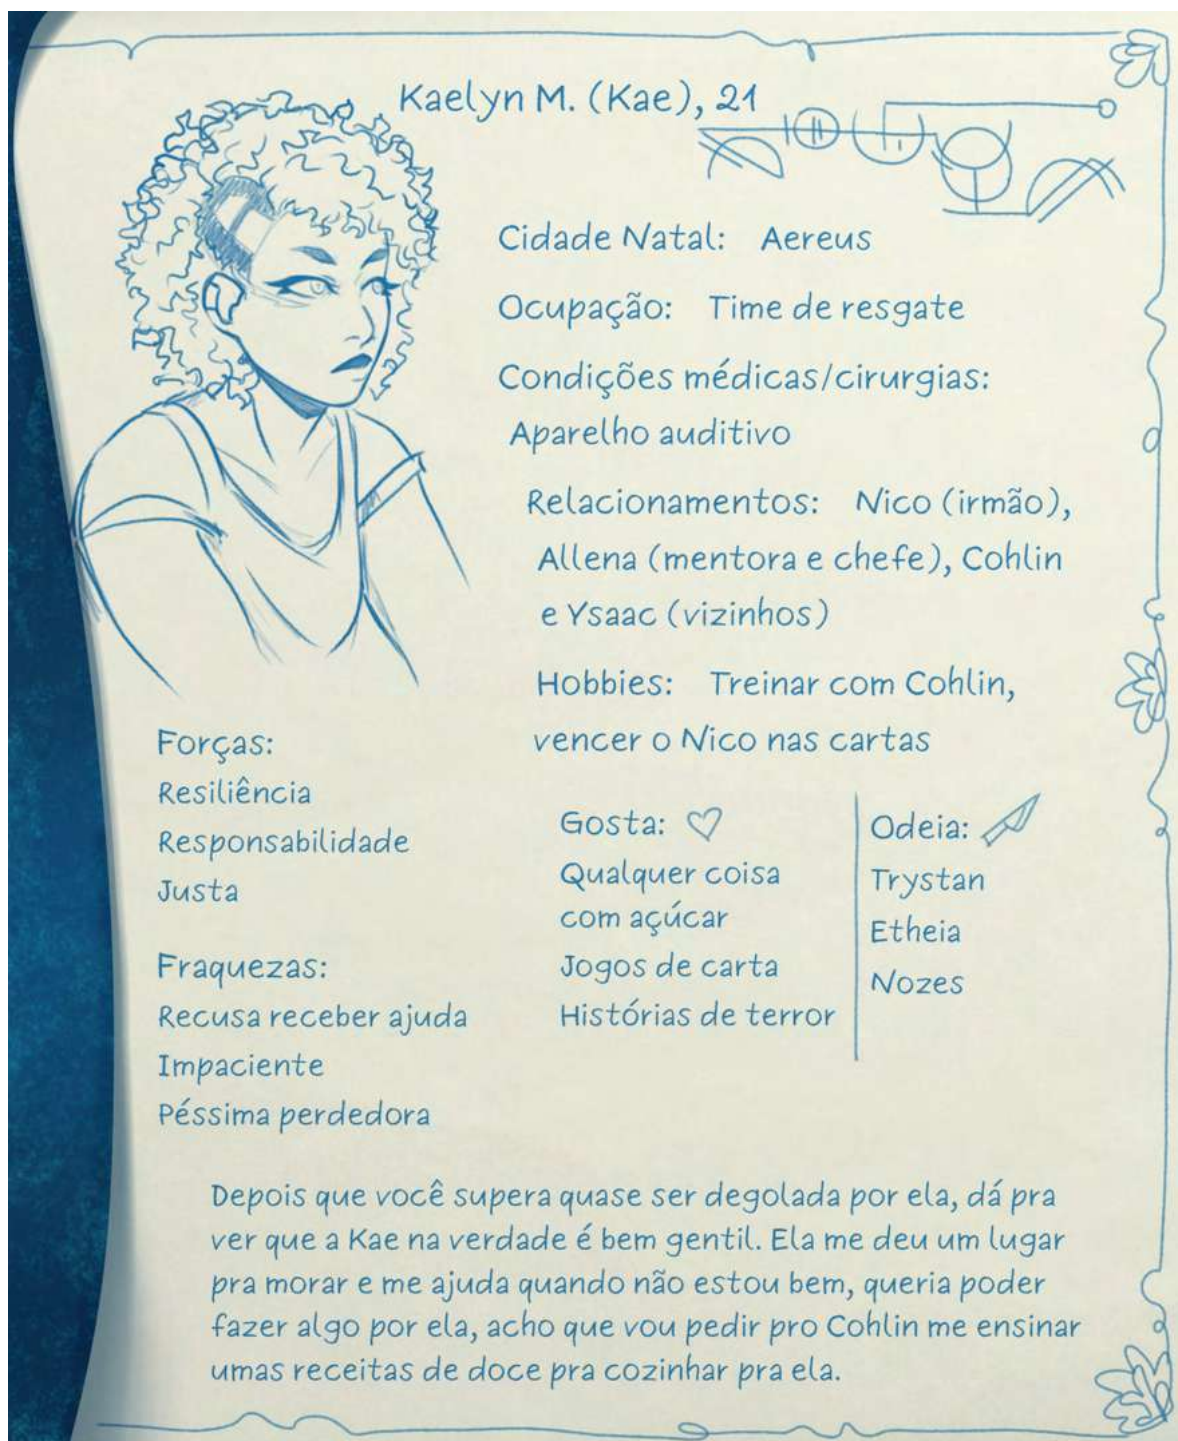 Kaelyn M. (Kae), 21
Cidade Natal: Aereus
Ocupação: Time de resgate
Condições médicas/cirurgias:
Aparelho auditivo
Relacionamentos: Nico (irmão),
Allena (mentora e chefe), Cohlin
e Ysaac (vizinhos)
Hobbies: Treinar com Cohlin,
vencer o Nico nas cartas
Forças:
Resiliência
Responsabilidade
Justa
Fraquezas:
Recusa receber ajuda
Impaciente
Péssima perdedora
Gosta:
Qualquer coisa
com açúcar
Jogos de carta
Histórias de terror
Odeia:
Trystan
Etheia
Nozes
Depois que você supera quase ser degolada por ela, dá pra
ver que a Kae na verdade é bem gentil. Ela me deu um lugar
pra morar e me ajuda quando não estou bem, queria poder
fazer algo por ela, acho que vou pedir pro Cohlin me ensinar
umas receitas de doce pra cozinhar pra ela.